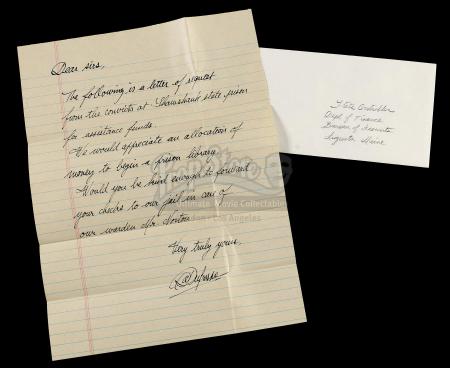 Dear sirs,
The following is a letter of request
from the convicts at Shawshank state prison
for assistance funds.
We would appreciate an allocation of
money to begin a prison library.
Would you be kind enough to forward
your checks to our jail in care of
our warden Mr Norton
Very truly yours,
Dufresne
State Controller
Dept of Finance
Division of Accounts
Augusta Maine
Prop Store
Ultimate Movie Collectables
London - Los Angeles